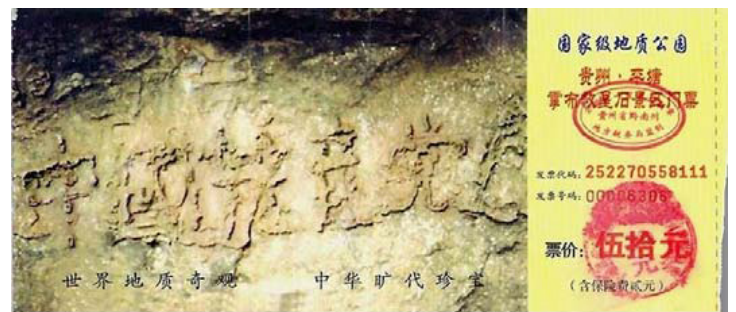 中國共産党亡
世界地质奇观 中华旷代珍宝
国家级地质公园
贵州·平塘
掌布救星石景区门票
贵州省黔南州
地方税务局监制
发票代码：252270558111
发票号码：00006306
票价：伍拾元
（含保险费贰元）